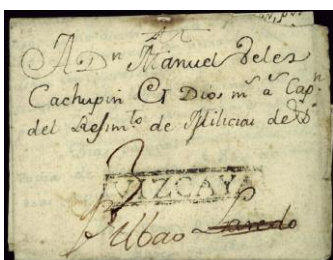 A Dn Manuel Velez
Cachupin G Dios ms as Capn
del Regimto de Milicias de
VIZCAYA
Bilbao Laredo